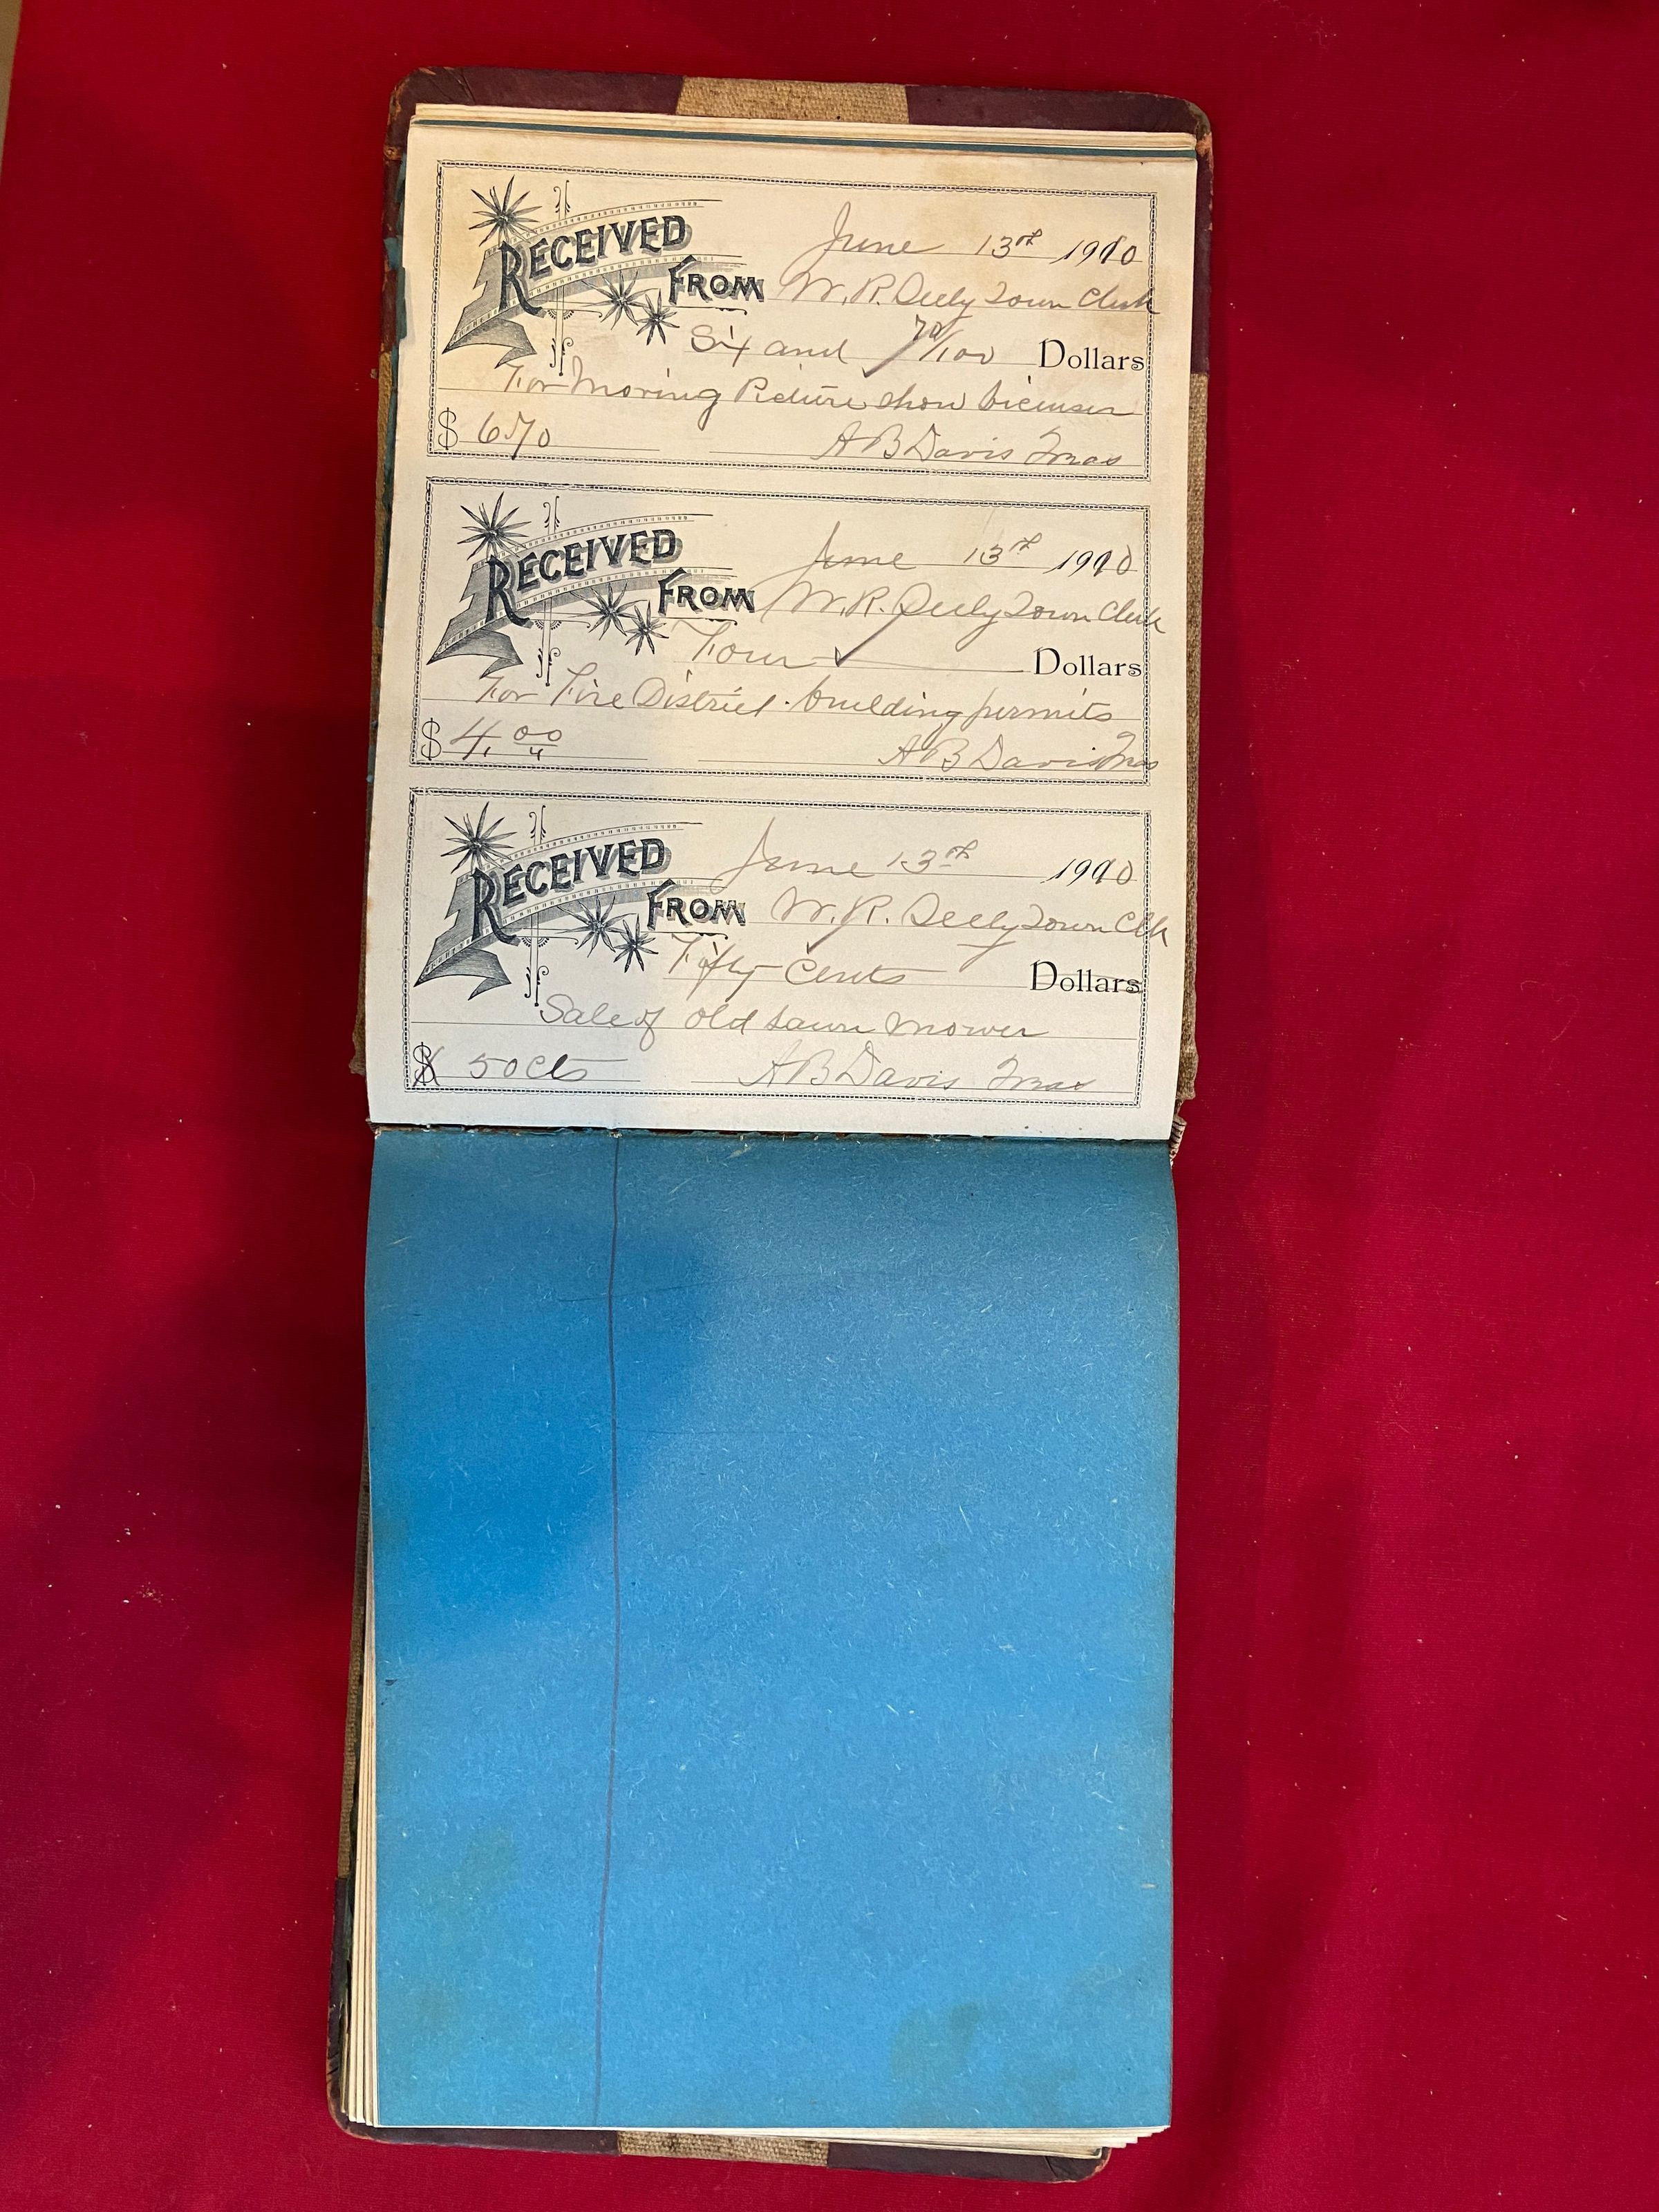 June 13th 1910
RECEIVED FROM W. R. Seely Town Clerk
Six and 70/100 Dollars
For Moving Picture show licenses
$ 6.70 A B Davis Treas
June 13th 1910
RECEIVED FROM W. R. Seely Town Clerk
Four Dollars
For Fire District building permits
$ 4.00 A B Davis Treas
June 13th 1910
RECEIVED FROM W. R. Seely Town Clk
Fifty Cents Dollars
Sale of old Lawn Mower
$ 50 cts A B Davis Treas